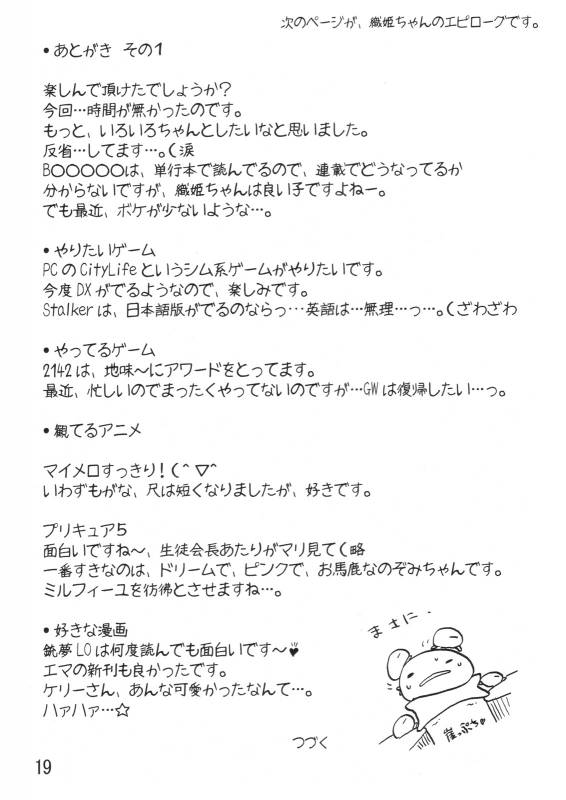 次のページが、織姫ちゃんのエピローグです。
・あとがき その1
楽しんで頂けたでしょうか?
今回…時間が無かったのです。
もっと、いろいろちゃんとしたいなと思いました。
反省…してます…。(涙
B○○○○○は、単行本で読んでるので、連載でどうなってるか
分からないですが、織姫ちゃんは良い子ですよねー。
でも最近、ボケが少ないような…。
・やりたいゲーム
PCのCityLifeというシム系ゲームがやりたいです。
今度DXがでるようなので、楽しみです。
Stalkerは、日本語版がでるのならっ…英語は…無理…っ…。(ざわざわ
・やってるゲーム
2142は、地味〜にアワードをとってます。
最近、忙しいのでまったくやってないのですが…GWは復帰したい…っ。
・観てるアニメ
マイメロすっきり!(^▽^
いわずもがな、尺は短くなりましたが、好きです。
プリキュア5
面白いですね〜、生徒会長あたりがマリ見て(略
一番すきなのは、ドリームで、ピンクで、お馬鹿なのぞみちゃんです。
ミルフィーユを彷彿とさせますね…。
・好きな漫画
銃夢LOは何度読んでも面白いです〜♥
エマの新刊も良かったです。
ケリーさん、あんな可愛かったなんて…。
ハァハァ…☆
まさに、
崖っぷち
つづく
19